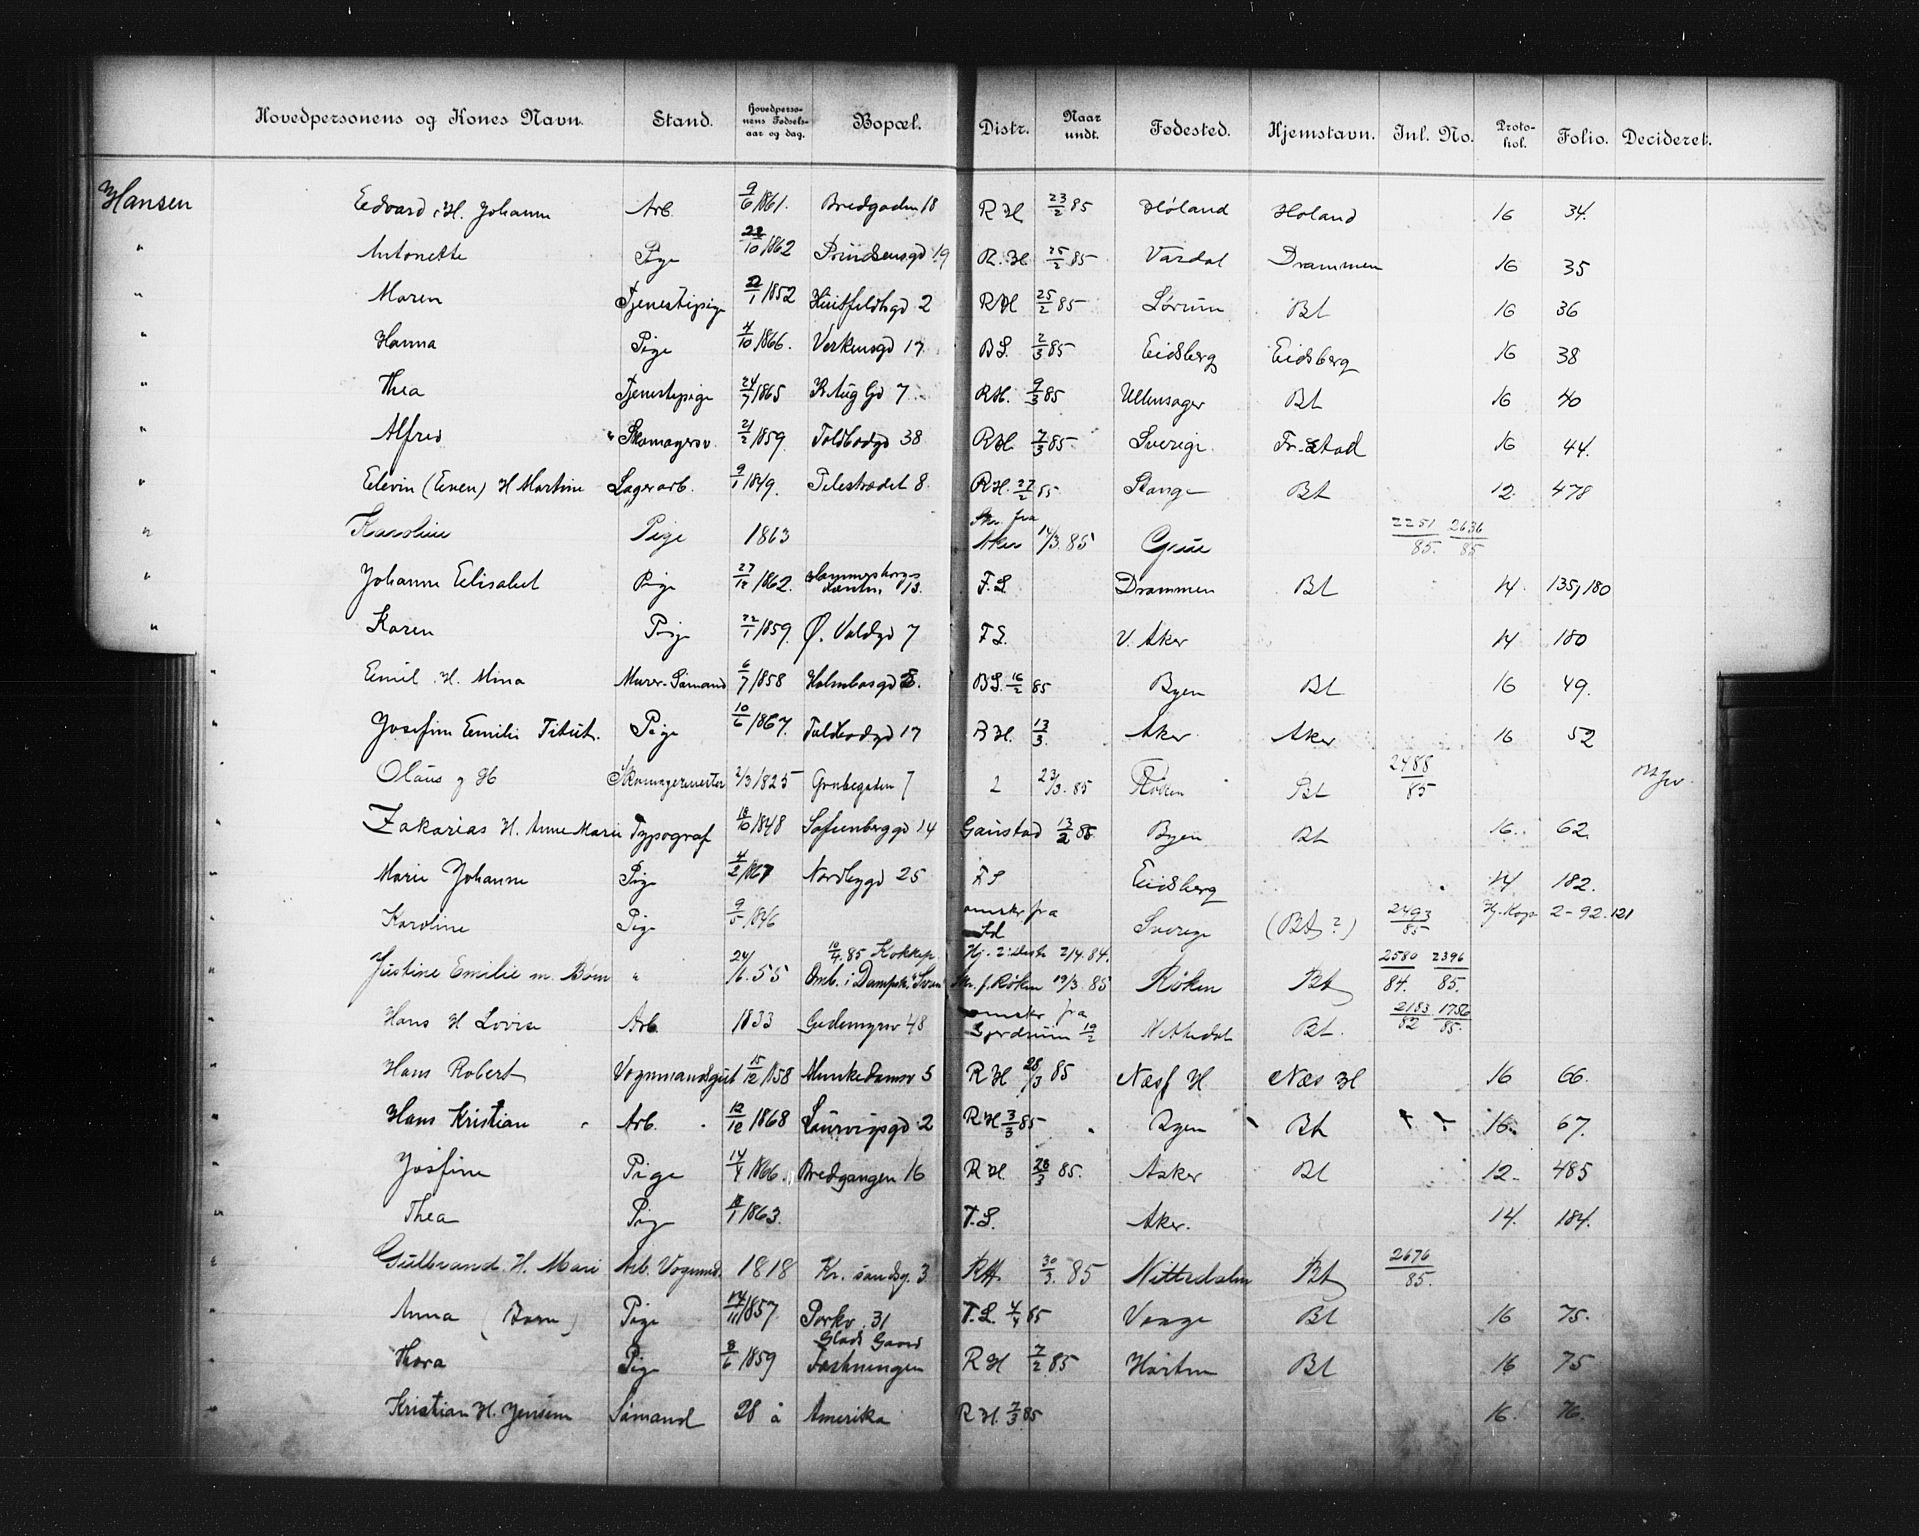 Hovedpersonens og Kones Navn. Stand. Hovedpersonens Fødselsaar og dag. Bopæl. Distr. Naar undt. Fødested. Hjemstavn. Inl. No. Protokol. Folio. Decideret.
Hansen Edvard, H. Johanne Arb. 9/6 1861. Bredgaden 18 R H 23/2 85 Høland Høland 16 34.
" Antonette Pige 28/10 1862 Prindsensgd 19 R. H 25/2 85 Vardal Drammen 16 35
" Maren Tjenestepige 22/1 1852 Huitfeldtsgd 2 R H 25/2 85 Sørum Bt 16 36
" Hanna Pige 4/10 1866. Verkensgd 17 B S. 2/3 85 Eidsberg Eidsberg 16 38
" Thea Tjenestepige 24/7 1865 K Aug Gd 7 R H. 9/3 85 Ullensager Bt 16 40
" Alfred " Skomagersv. 21/2 1859. Toldbodgd 38 R H. 7/3 85. Sverige. Fr. Stad 16 44.
" Elevin (Even) H Martine Lagerarb. 9/1 1849. Pilestrædet 8. R H. 27/2 85 Stange Bt 12. 478
" Karoline Pige 1863 Skr. fra Aker 14/3. 85 Grue 2251/85. 2636/85
" Johanne Elisabet Pige 27/12 1862. Hammersborgs 13. F. S. Drammen Bt 14. 135, 180
" Karen Pige 22/1 1859. Ø. Voldgd 7 F S. V. Aker 14 180
" Emil. H. Mina Murer-Sømand 6/7 1858 Holmbosgd 8. B S. 16/2 85 Byen Bt 16 49.
" Josefine Emilie Pige 10/6 1867. Toldbodgd 17 B H. 13/3. Aker Aker 16 52
Olaus g H Skomagermester 2/3 1825 Grubegaden 7 2 23/3. 85 Røken Bt 2488/85
" Zakarias H. Anne Marie Typograf 18/10 1848 Sofienberggd 14 Gaustad 13/2 85 Byen Bt 16. 62.
" Marie Johanne Pige 4/2 1867 Nordbygd 25 F S Eidsberg 14 182.
" Karoline Pige 9/5 1846 omskr fra Sverige (Bt?) 2493/85 Hj. Kop 2-92. 121
" Justine Emilie m. Børn " 24/6. 55 10/4. 85 Kokkep. Omb. i Dampsk. "Svan Hj. 2 2/4. 84. Skr. f. Røken 19/3. 85 Røken Bt 2580/84. 2396/85.
" Hans H Lovise Arb. 1833 48 omskr fra Gjerdrum 19/2 Nittedal Bt. 2183/82 1756/85.
" Hans Robert Vognmandsgut 15/12 1858 Munkedamsv 5 R H 28/3 85 Næs H. Næs H 16 66.
" Hans Kristian Arb. 12/12 1868 Laurvigsgd 2 R H 3/3 85 Byen Bt 16. 67.
" Josfine Pige 14/4 1866. Bredgangen 16 R H. 28/3 85. Asker Bt 12- 485
" Thea Pige 1863. F. S. Aker. 14. 184.
" Gulbrand. H. Mari Arb. Vognmd. 1818 Kr. sandsg. 3 R H. 30/3. 85 Nittedalen Bt 2676/85.
" Anna (Barn) Pige 14/11 1857. Parkv. 31 F. S. 4/4 85 Vaage Bt 16 75.
" Thora Pige 8/6 1859 Glads Gaard Fæstningen R H 7/2. 85 Hurtum Bt 16 75
" Kristian H. Jensine Sømand 28 å Amerika R H. 7/3 85 16. 76.